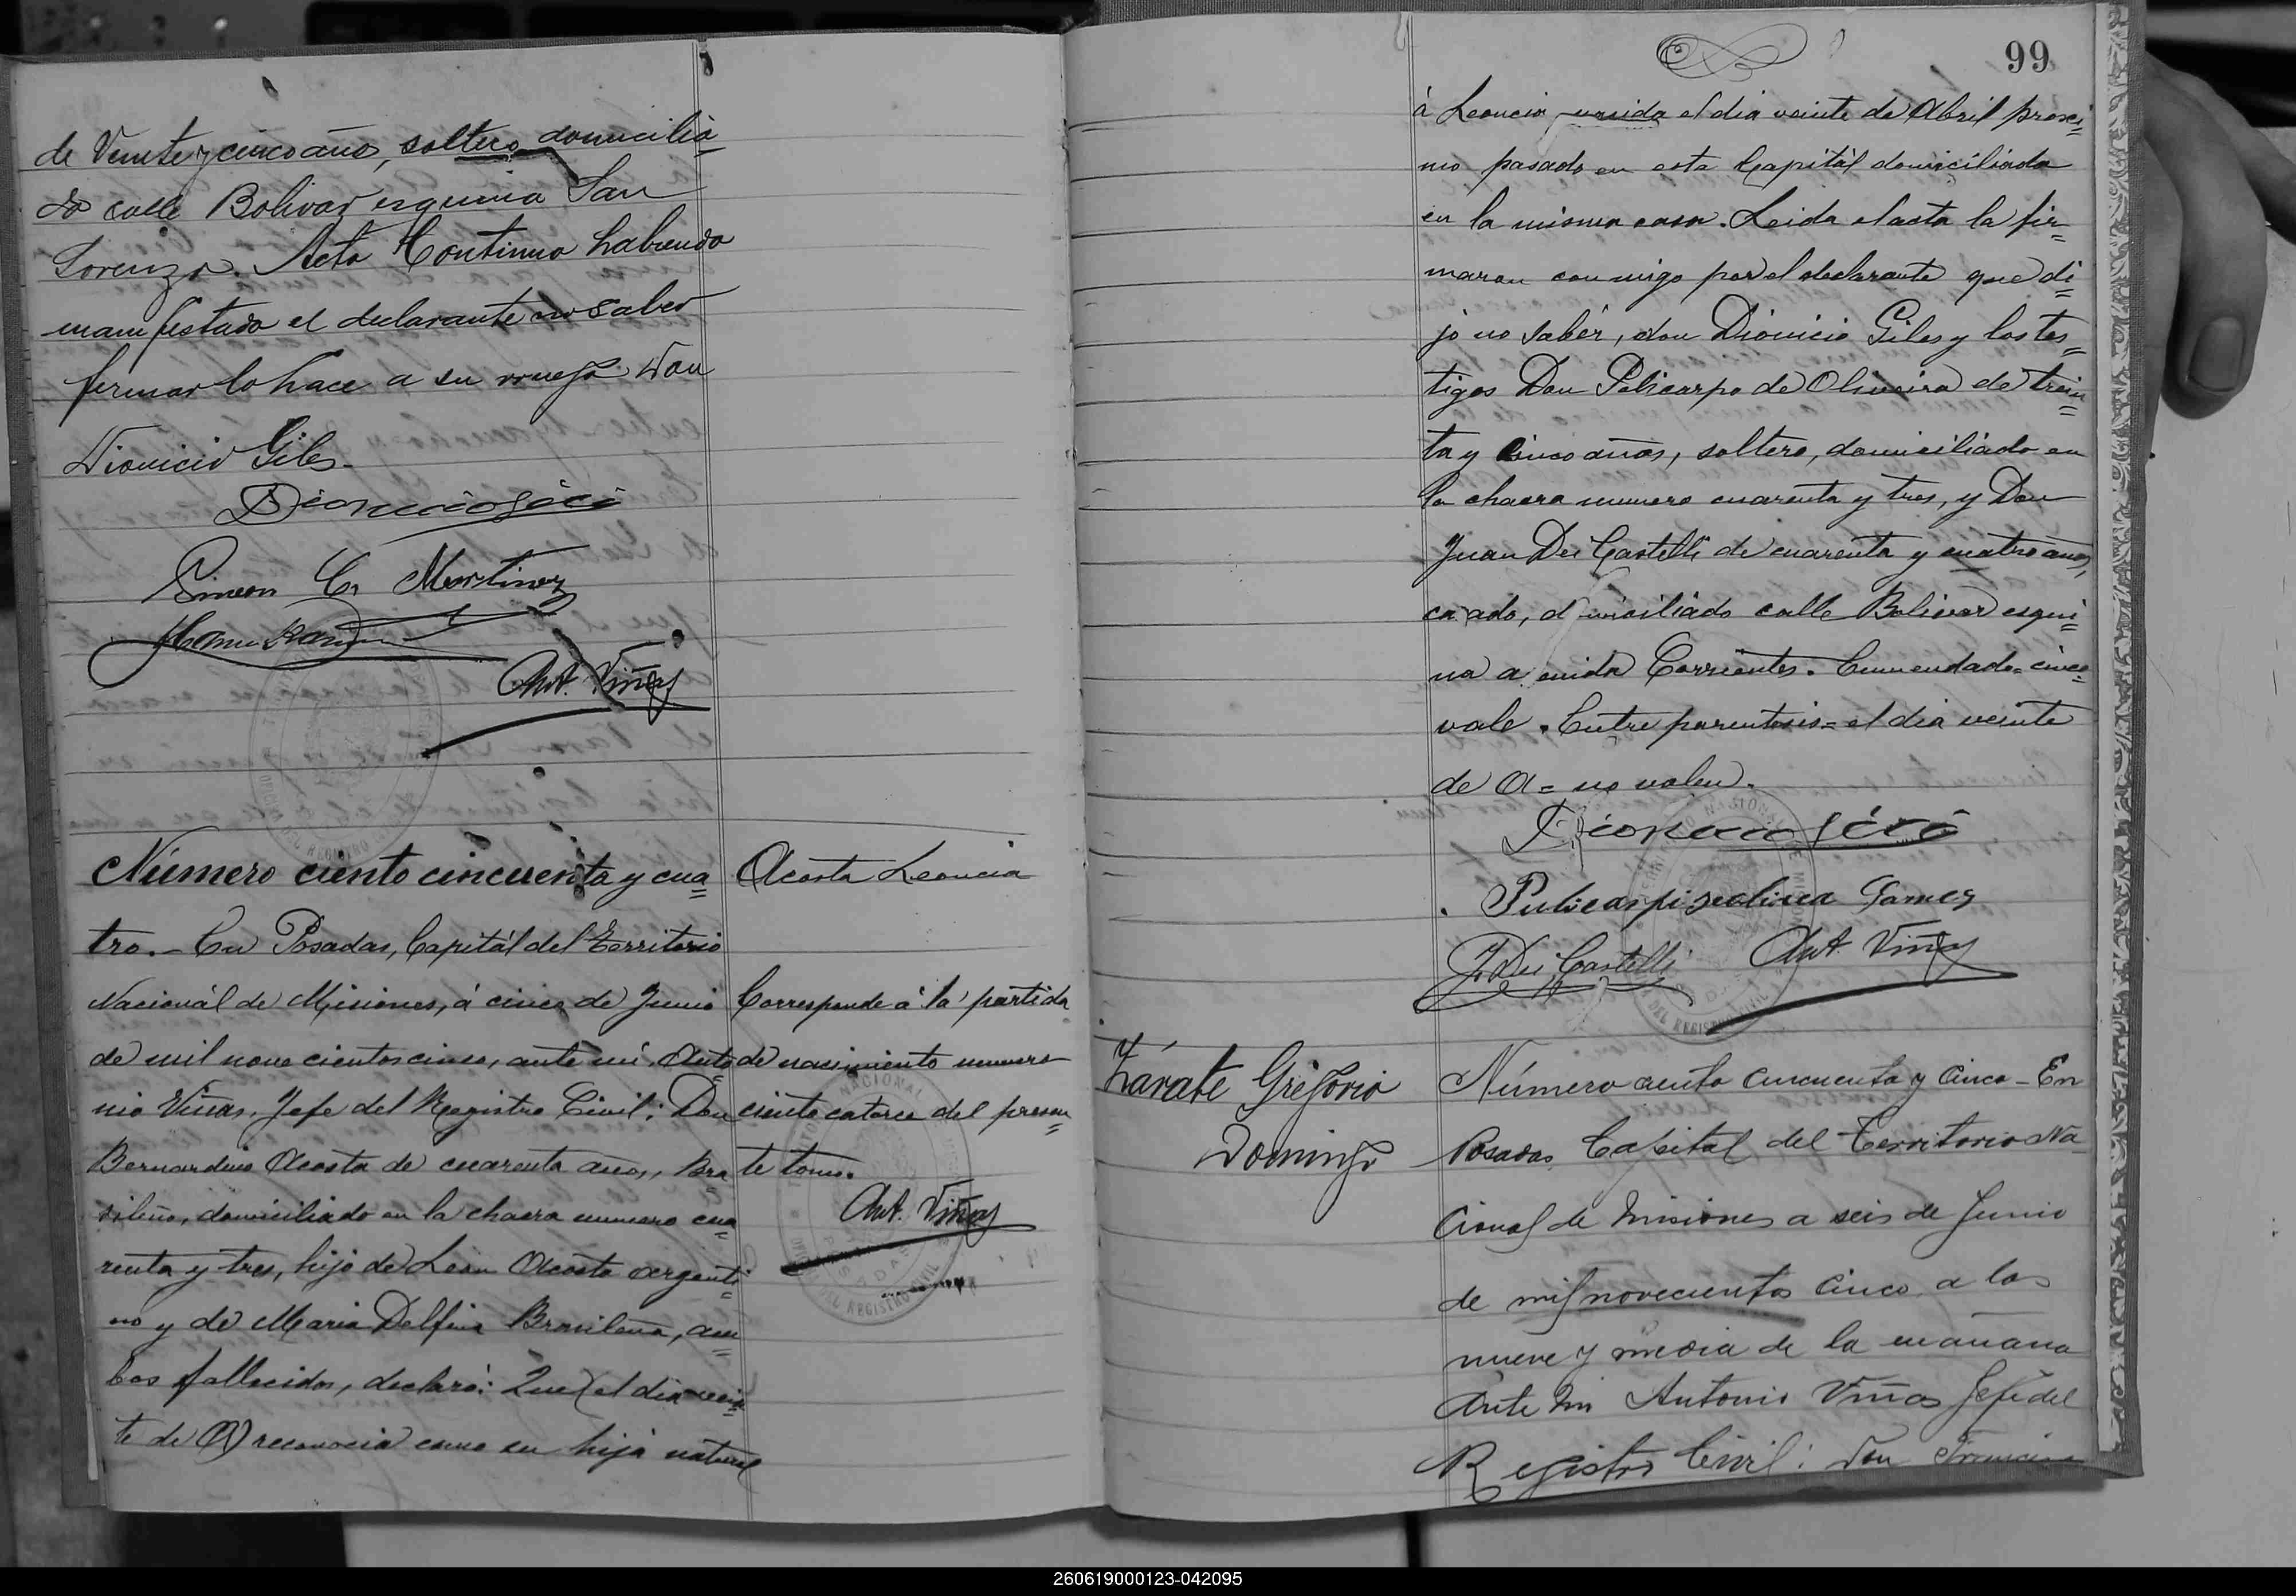 de Veinte y cinco año, soltero domicilia=
do calle Bolivar esquina San
Lorenzo. Acto Continuo habiendo
manifestado el declarante no saber
firmar lo hace a su ruego Don
Dionicio Giles.
Dionicio Giles
Simeon C. Martinez
Ant. Viñas
Número ciento cincuenta y cua=
tro.- En Posadas, Capitál del Territorio
Nacionál de Misiones, á cinco de Junio
de mil novecientos cinco, ante mí, Anto
nio Viñas, Jefe del Registro Civil: Don
Bernardino Acosta de cuarenta años, Bra
sileño, domiciliado en la chacra numero cua=
renta y tres, hijo de León Acosta argenti=
no y de Maria Delfina Brasileña, am=
bos fallecidos, declaró: Que (el dia vein=
te de A) reconocia como su hija natural
Acosta Leoncia
Corresponde á la partida
de nacimiento numero
ciento catorce del presen=
te tomo.
Ant. Viñas
99
á Leoncia, nacida el dia veinte de Abril proxi=
mo pasado en esta Capitál domiciliada
en la misma casa. Leida el acta la fir=
maron conmigo por el declarante que di=
jo no saber, don Dionicio Giles y los tes=
tigos Don Policarpo de Oliveira de trein=
ta y cinco años, soltero, domiciliado en
la chacra numero cuarenta y tres, y Don
Juan Dei Castelli de cuarenta y cuatro años,
ca ado, d miciliado calle Bolivar esqui=
na a enida Corrientes. Enmendado=cinco=
vale. Entre parentesis=el dia veinte
de A= no valen.
Dionicio Giles
J. Dei Castelli
Ant. Viñas
Zárate Gregorio
Domingo
Número ciento cincuenta y cinco - En
Posadas Capital del Territorio Na
cional de Misiones a seis de Junio
de mil novecientos cinco a las
nueve y media de la mañana
Ante mi Antonio Viñas Jefe del
Registro Civil: Don Francisco
260619000123-042095